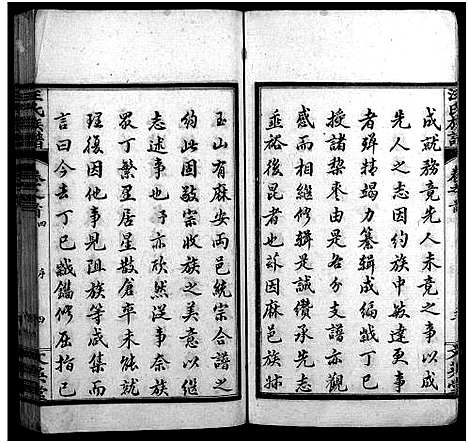 汪氏族譜 卷之首
成就務竟先人未竟之志以成
先人之志因約族中敏達更事
者殫精竭力纂輯成編歲丁巳
授諸棃枣於是各分支譜亦觀
感而相繼修輯是誠纘承先志
並裕後昆者也訟因麻邑族姊
玉山有麻安兩邑統宗合譜之
約此固敬宗收族之美意以繼
志述事也予亦欣然從事奈族
眾丁繁星居星散倉卒未能就
理復因他事見阻族等咸其
言曰今去丁巳歲鐫修屈指已
汪氏族譜 卷之首 序 四